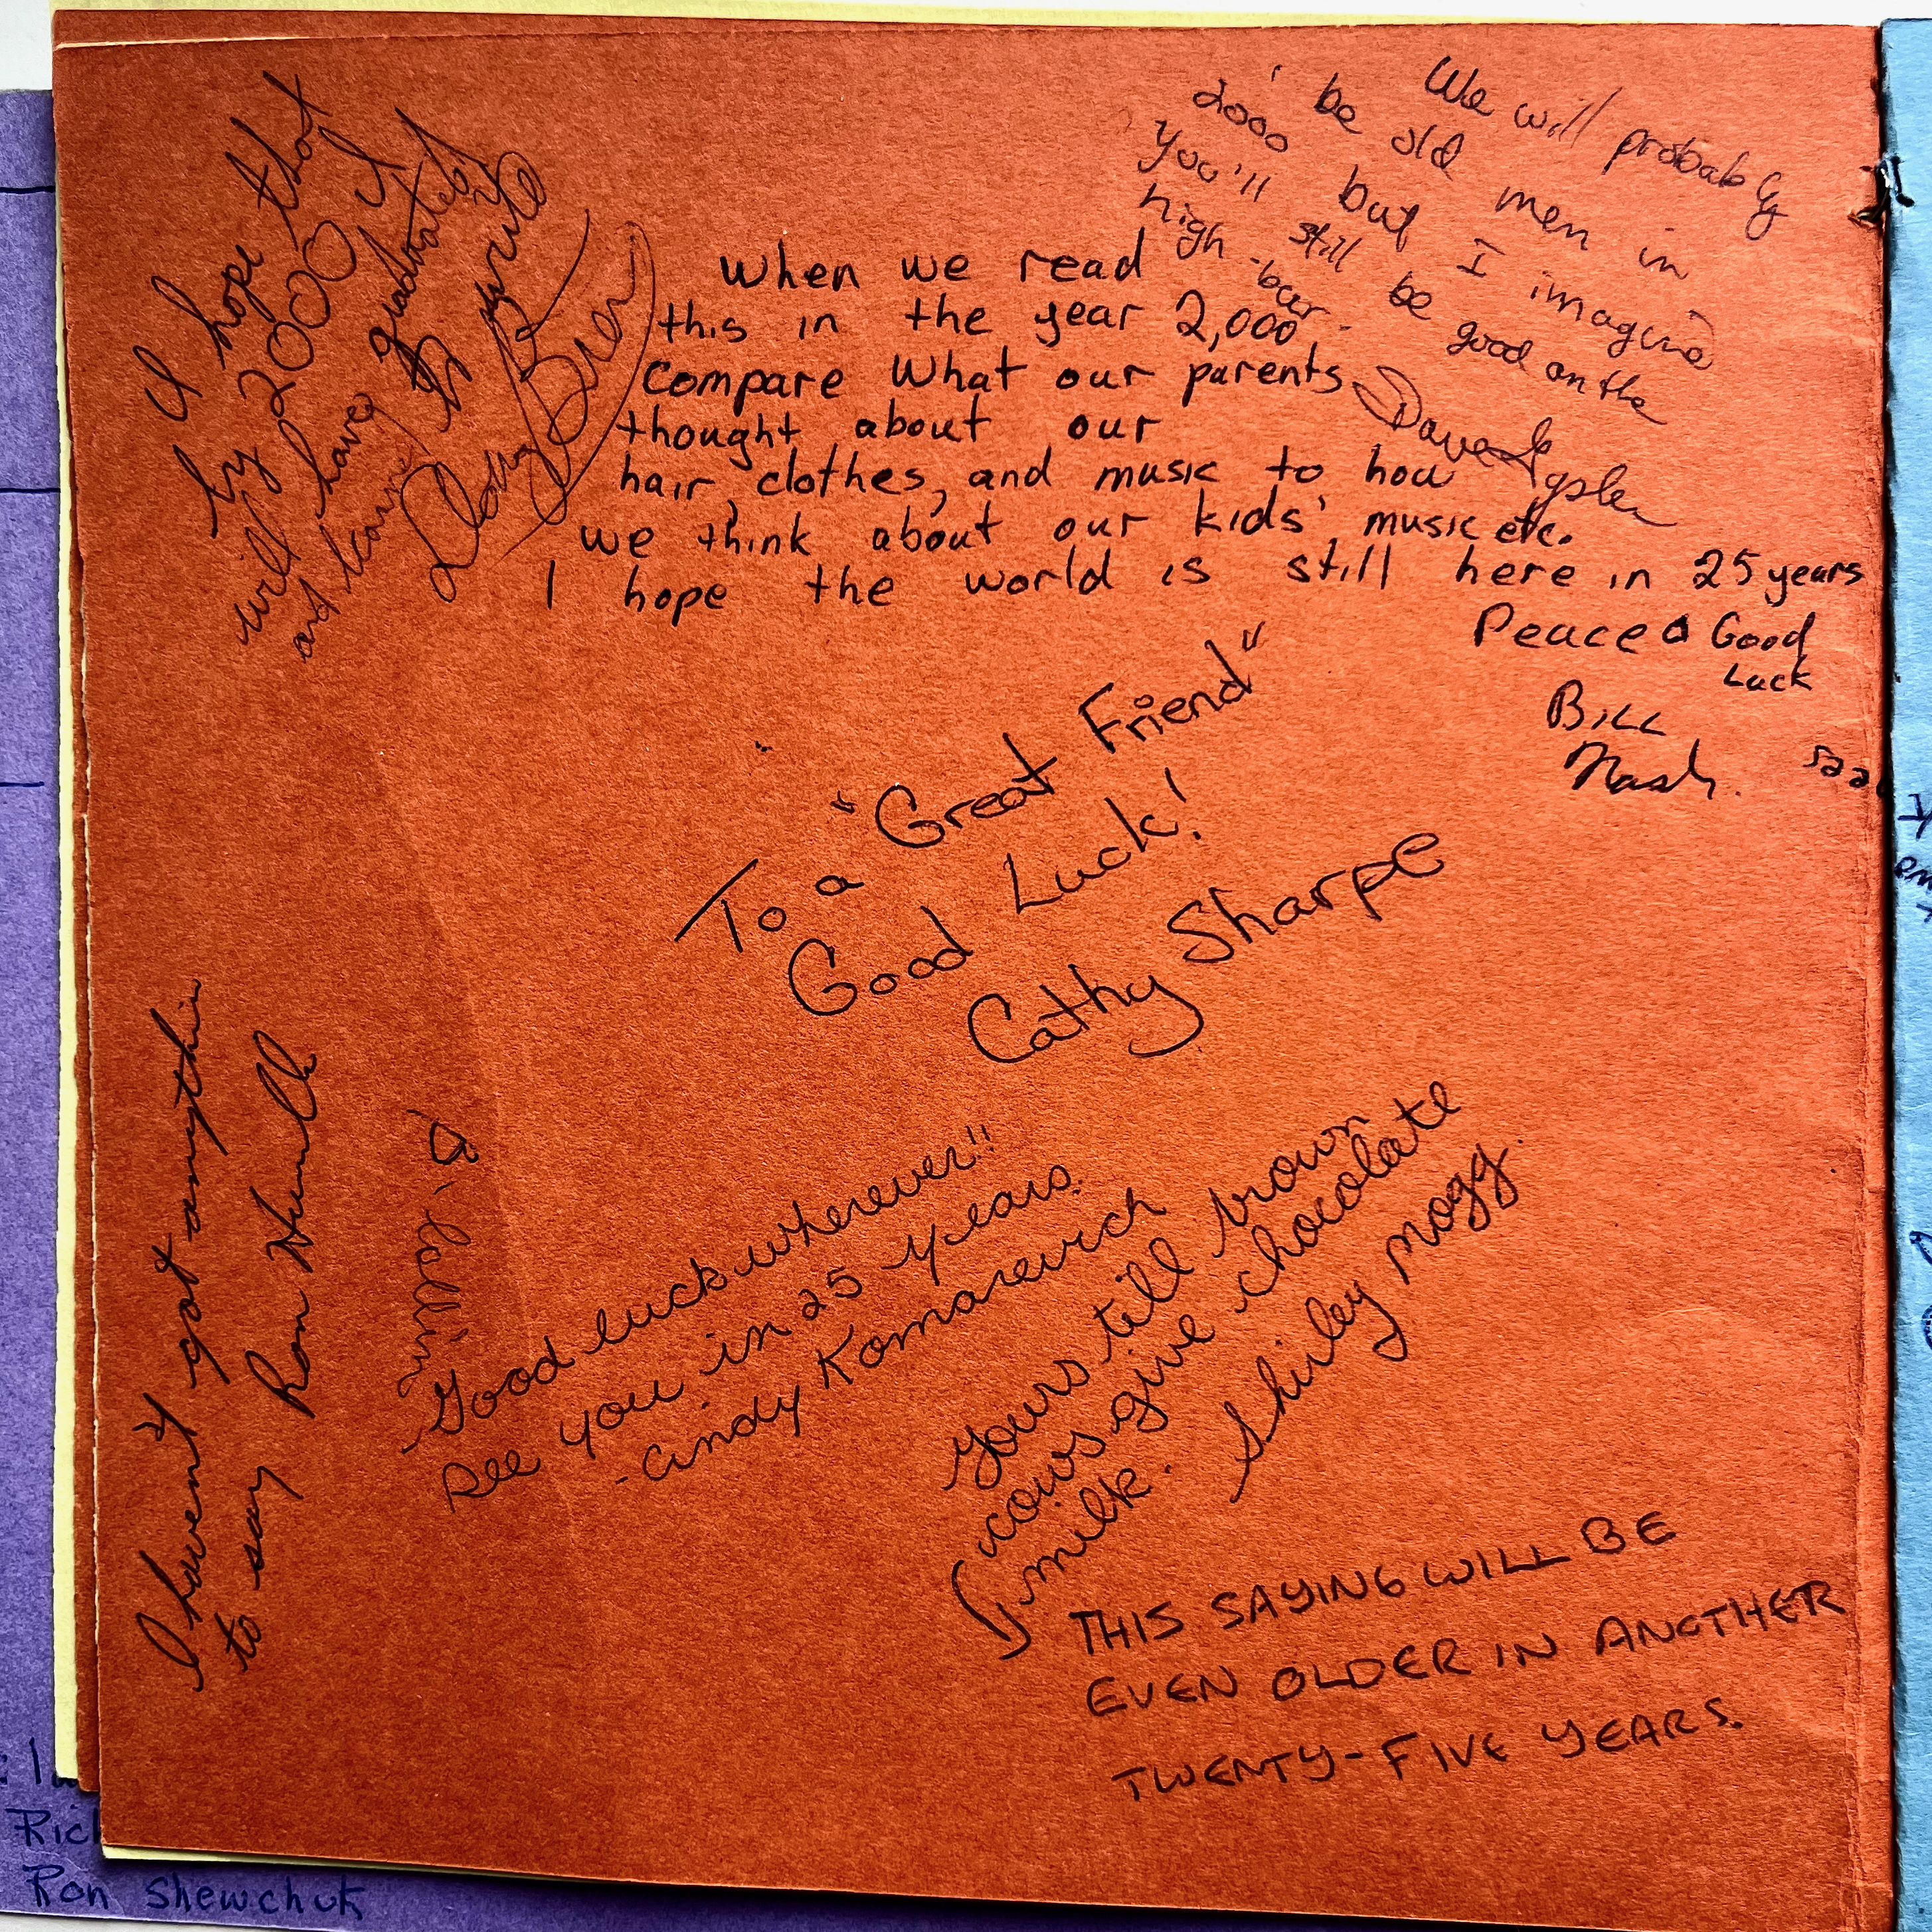 I hope that
by 2000 I
will have graduated
and learned to write
We will probably
be old men in
2000 but I imagine
you'll still be good on the
high-bar.
Dave
When we read
this in the year 2,000
compare what our parents
thought about our
hair, clothes, and music to how
we think about our kids' music etc.
I hope the world is still here in 25 years
Peace & Good
Luck
Bill
Nash.
To a "Great Friend"
Good Luck!
Cathy Sharpe
I haven't got anythin
to say Ron
Good luck wherever!!
See you in 25 years.
-Cindy Komarevich
Yours till brown
cows give chocolate
milk. Shirley Mogg.
THIS SAYING WILL BE
EVEN OLDER IN ANOTHER
TWENTY-FIVE YEARS.
Ric
Ron Shewchuk